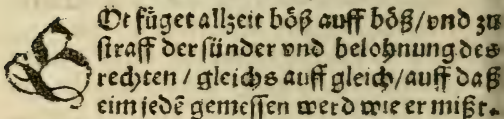 GOt füget allzeit böß auff böß/vnd zů
straff der sünder vnd belohnung des
rechten / gleichs auff gleich/auff daß
eim jedẽ gemessen werd wie er mißt.